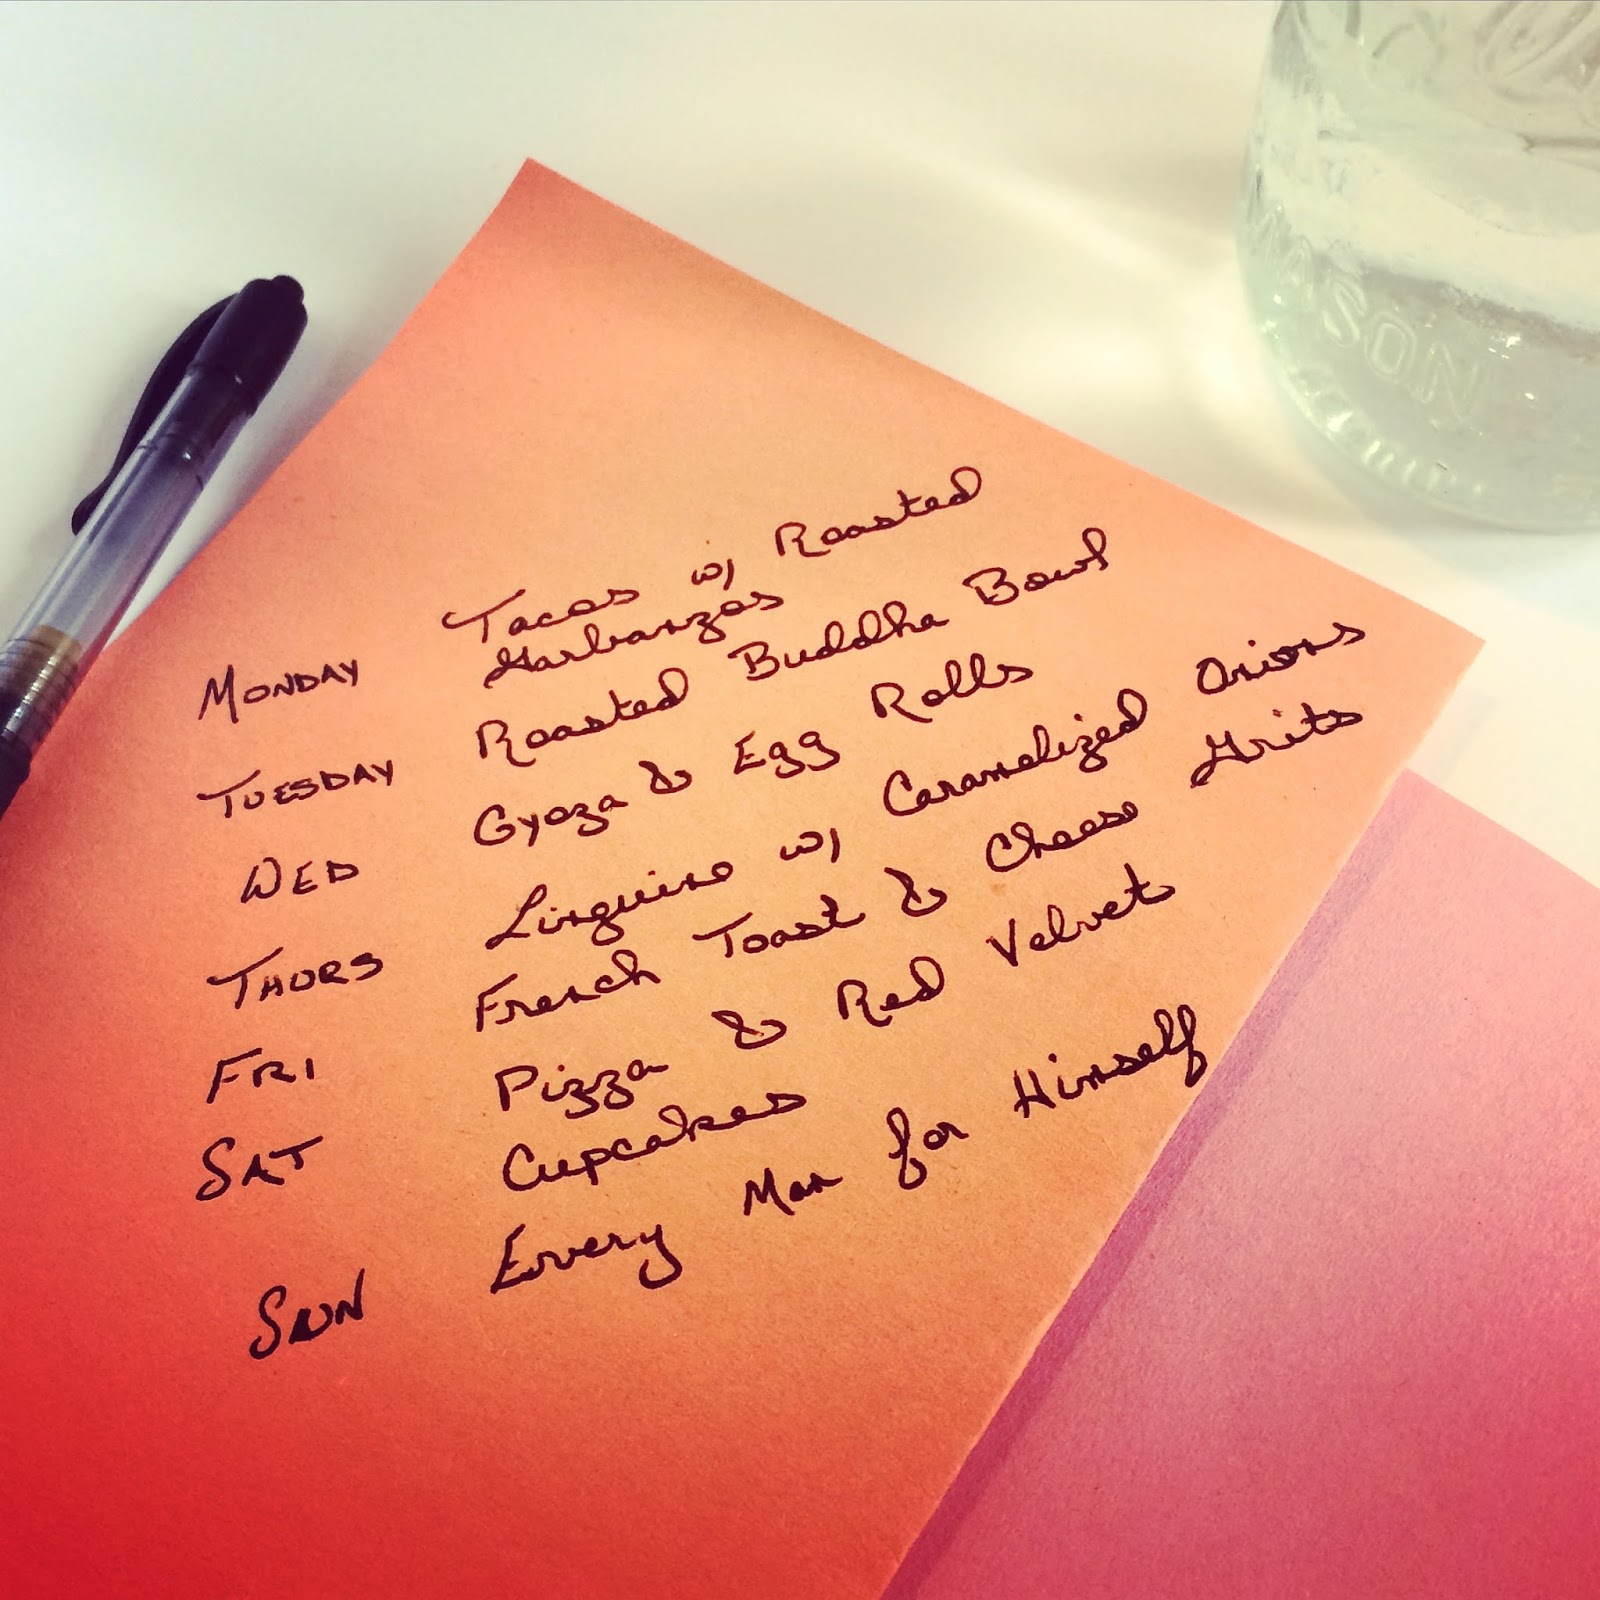 MONDAY Tacos w/ Roasted
Garbanzos
TUESDAY Roasted Buddha Bowl
WED Gyoza & Egg Rolls
THURS Linguine w/ Caramelized Onions
FRI French Toast & Cheese Grits
SAT Pizza & Red Velvet
Cupcakes
SUN Every Man for Himself
MASON